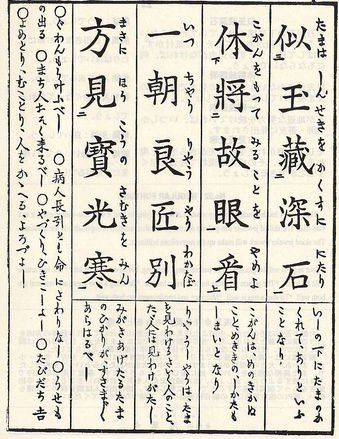 たまは しんせきを かくすに にたり
似三玉藏二深石一
こがんをもつて みることを やめよ
休下將二故眼一看上
いつ ちやう りやう しやう わかたば
一朝良匠別
まさに ほう こうの さむきを みん
方見二寶光寒一
いしの下にたまのか
くれて、ありといふ
ことなり
こがんはめのきかぬ
こと、めききの、しかたも
しまいとなり
りやうしやうは、たま
を見わけるさいく人のこと、
たゞ人は見わけがたし
みがきあげたるたま
のひかりが、すさまじく
あらはるべし
○ぐわんもう叶ふべし ○病人長引とも命にさわりなし ○うせも
の出る ○まち人おそく来るべし ○やづくり、ひきこしよし ○たびだち吉
○よめとり、むことり、人をかゝへる、よろづよし